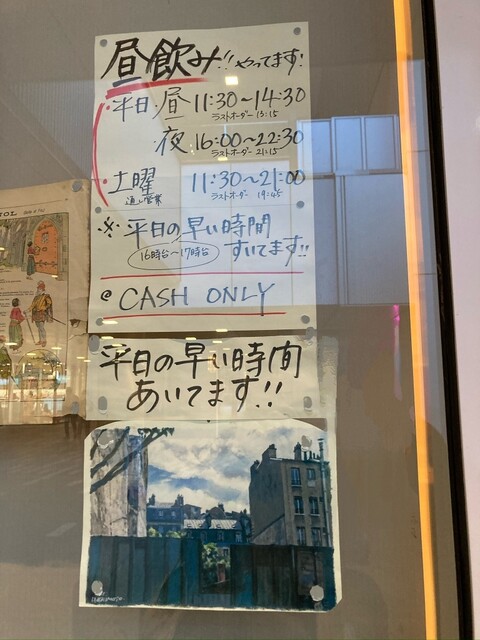 昼飲み!! やってます!
・平日・昼 11:30〜14:30
ラストオーダー 13:15
・夜 16:00〜22:30
ラストオーダー 21:15
・土曜 11:30〜21:00
通し営業 ラストオーダー 19:45
※ 平日の早い時間
16時台〜17時台 すいてます!!
◎ CASH ONLY
平日の早い時間
あいてます!!